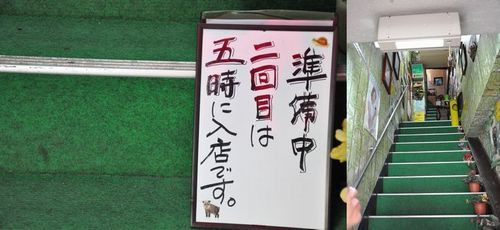 準備中
二回目は
五時に入店です。